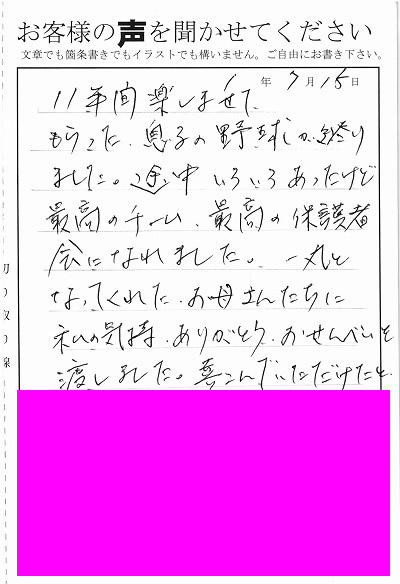 お客様の声を聞かせてください
文章でも箇条書きでもイラストでも構いません。ご自由にお書き下さい。
年7月15日
11年間楽しませて
もらった、息子の野球が終り
ました。途中いろいろあったけど
最高のチーム、最高の保護者
会になれました。一丸と
なってくれた、お母さんたちに
私の気持、ありがとう、おせんべいを
渡しました。喜こんでいただけたと
切り取り線